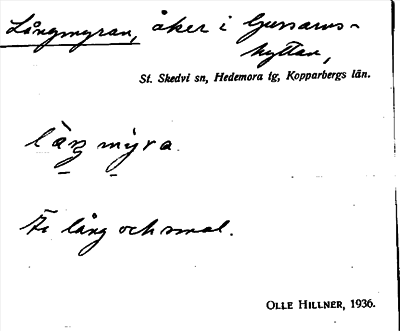 Långmyran, åker i Gussarvs-
hyttan,
St. Skedvi sn, Hedemora tg, Kopparbergs län.
làŋ mỳra.
Är lång och smal.
OLLE HILLNER, 1936.